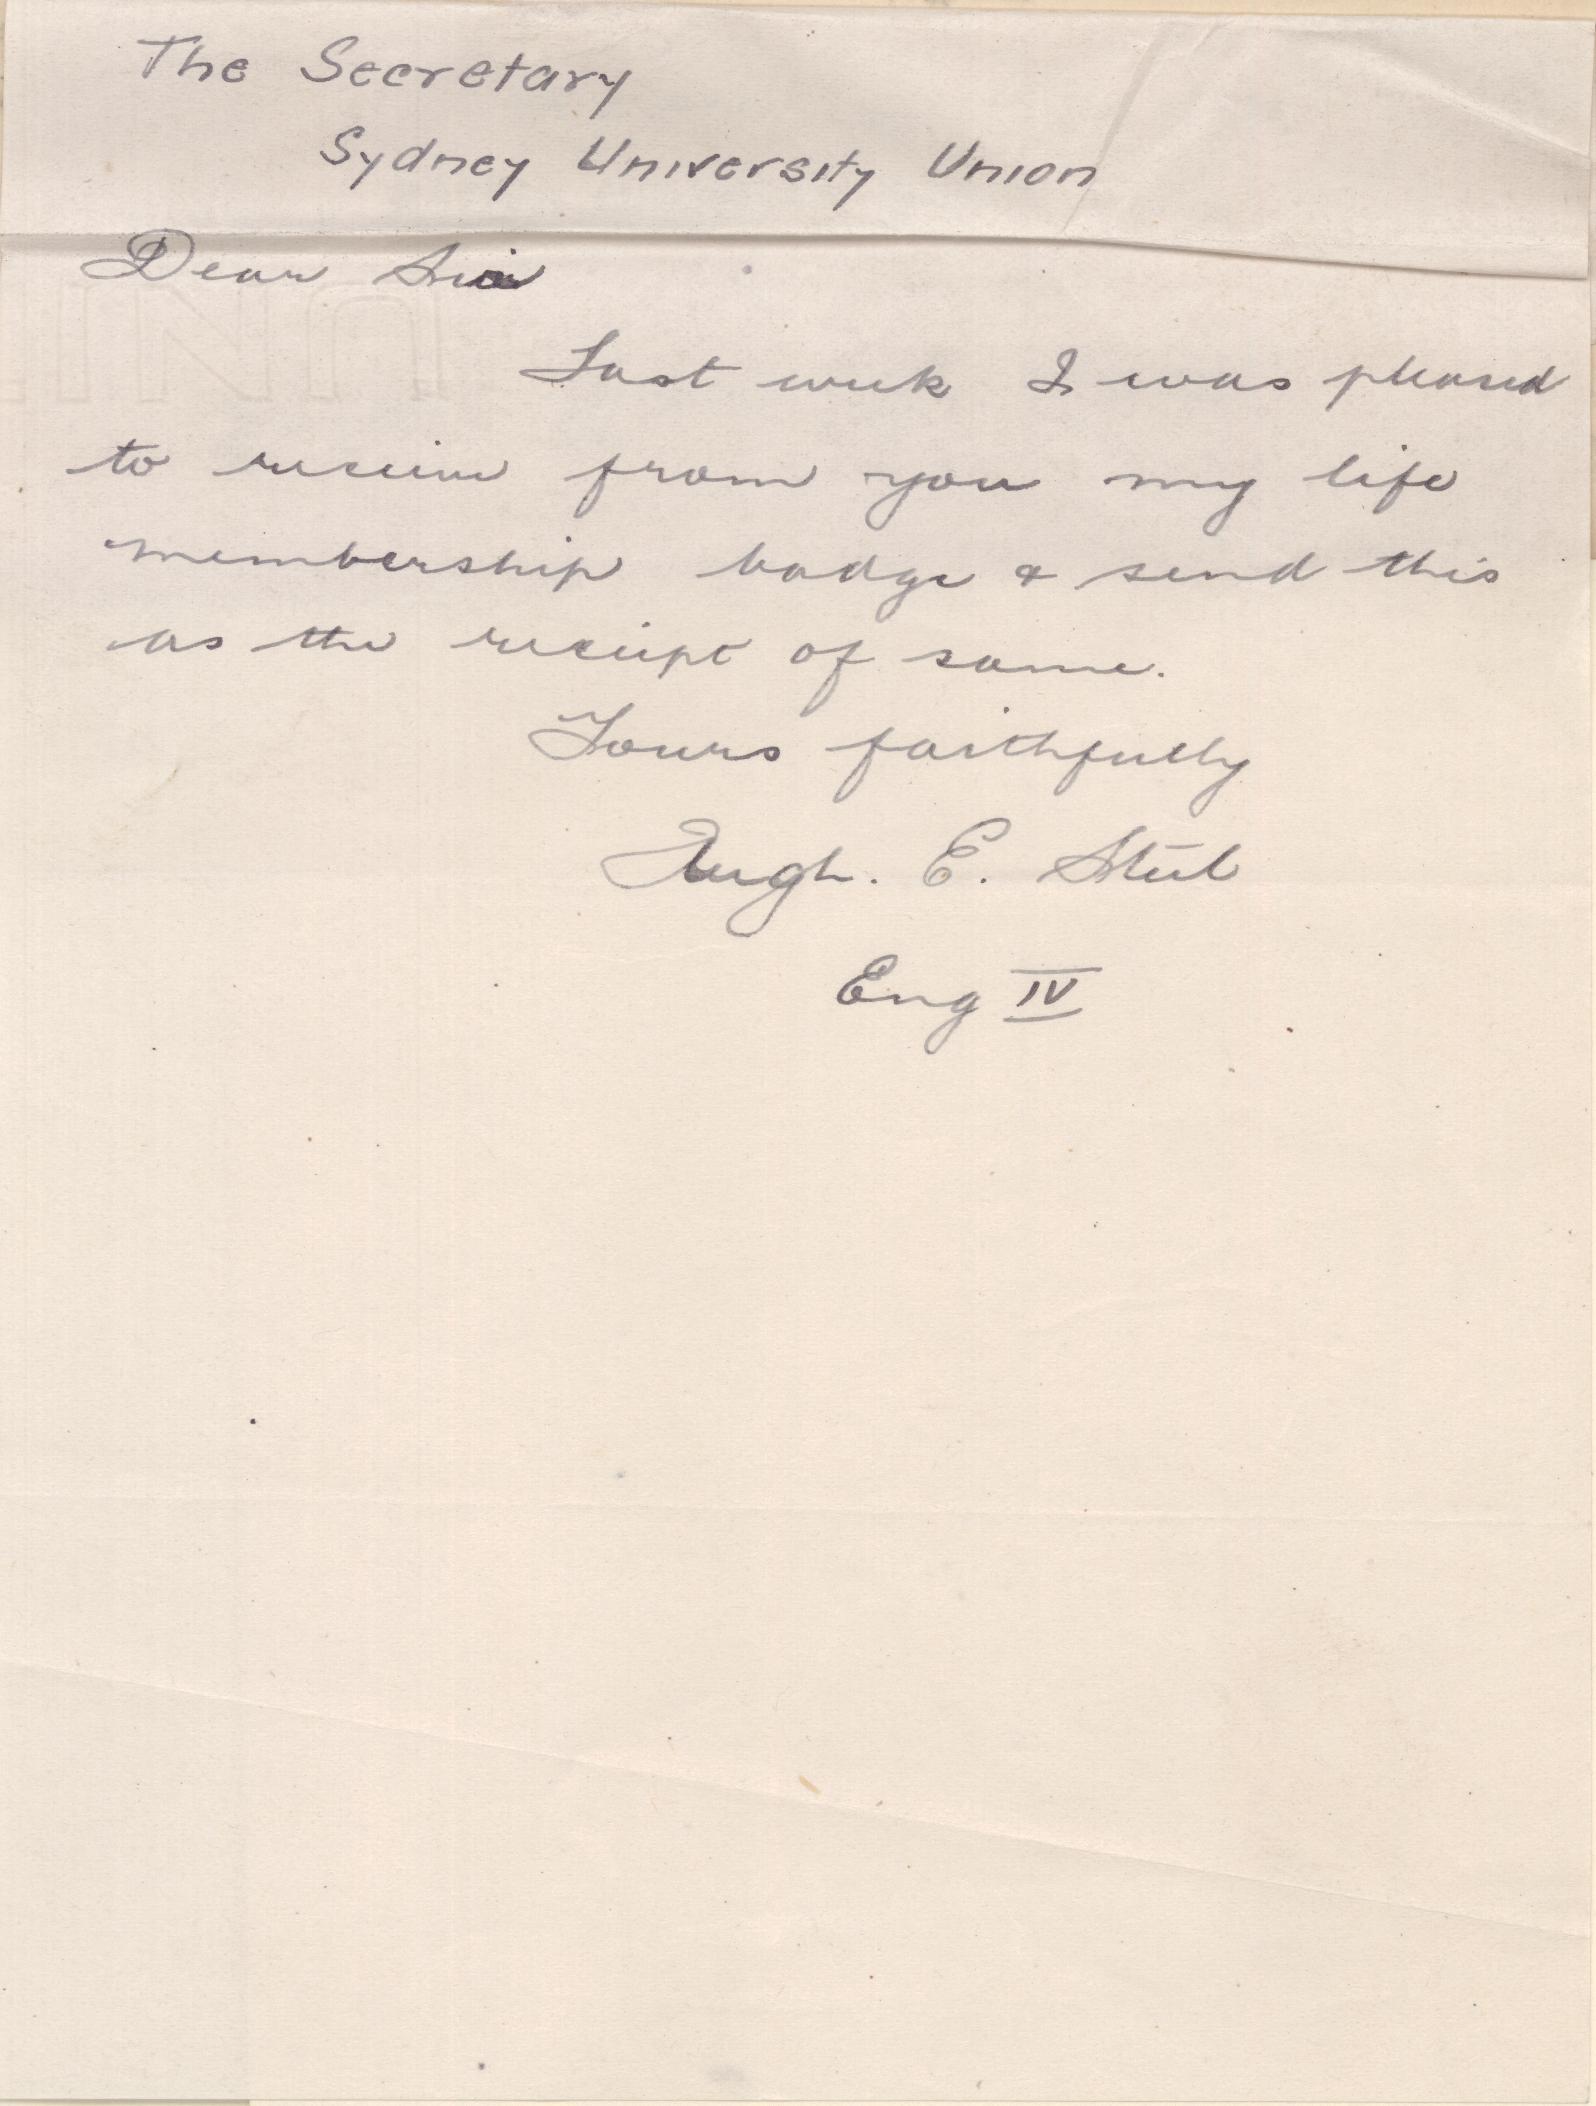 The Secretary
Sydney University Union
Dear Sir
Last week I was pleased
to receive from you my life
membership badge & send this
as the receipt of same.
Yours faithfully
Augh. E. Steel
Eng IV